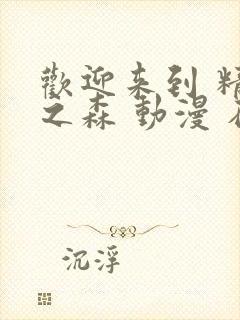 歡迎来到 精
之森 動漫
沉浮